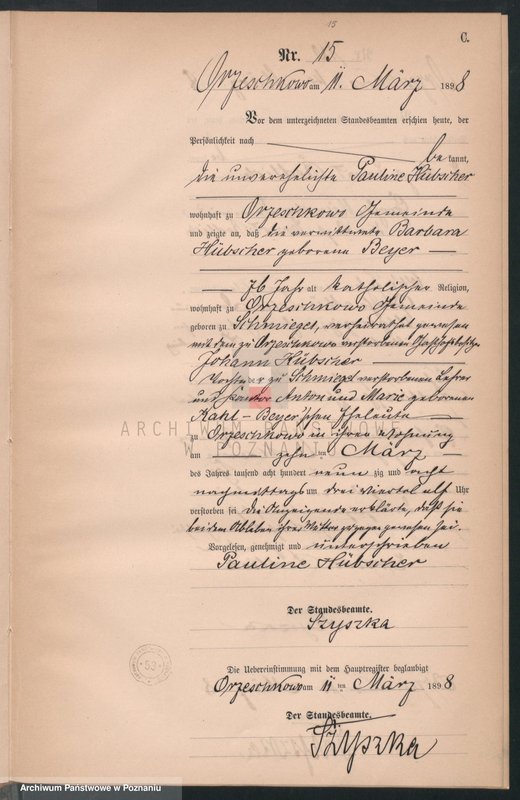 15
C.
Nr. 15
Orzeschkowo am 11. März 1898
Vor dem unterzeichneten Standesbeamten erschien heute, der
Persönlichkeit nach
be kannt,
die unverehelichte Pauline Hübscher
wohnhaft zu Orzeschkowo Gemeinde
und zeigte an, daß die verwittwete Barbara
Hübscher geborene Beyer
76 Jahr alt katholischer Religion,
wohnhaft zu Orzeschkowo Gemeinde
geboren zu Schmiegel, verheirathet gewesen
mit dem zu Orzeschkowo verstorbenen
Johann Hübscher
Tochter der zu Schmiegel verstorbenen Lehrer
und Kantor Anton und Marie geborenen
Kahl - Beyer'schen Eheleute
ARCHIWUM PAŃSTWOWE
W POZNANIU
zu Orzeschkowo in ihrer Wohnung
am zehn ten März
des Jahres tausend acht hundert neun zig und acht
nachmittags um drei viertel elf Uhr
verstorben sei. Die Anzeigende erklärte, daß sie
bei dem Ableben ihrer Mutter zugegen gewesen sei.
Vorgelesen, genehmigt und unterschrieben
Pauline Hübscher
Der Standesbeamte.
Szyszka
53
Die Uebereinstimmung mit dem Hauptregister beglaubigt
Orzeschkowo am 11 ten März 1898
Der Standesbeamte.
Szyszka
Archiwum Państwowe w Poznaniu